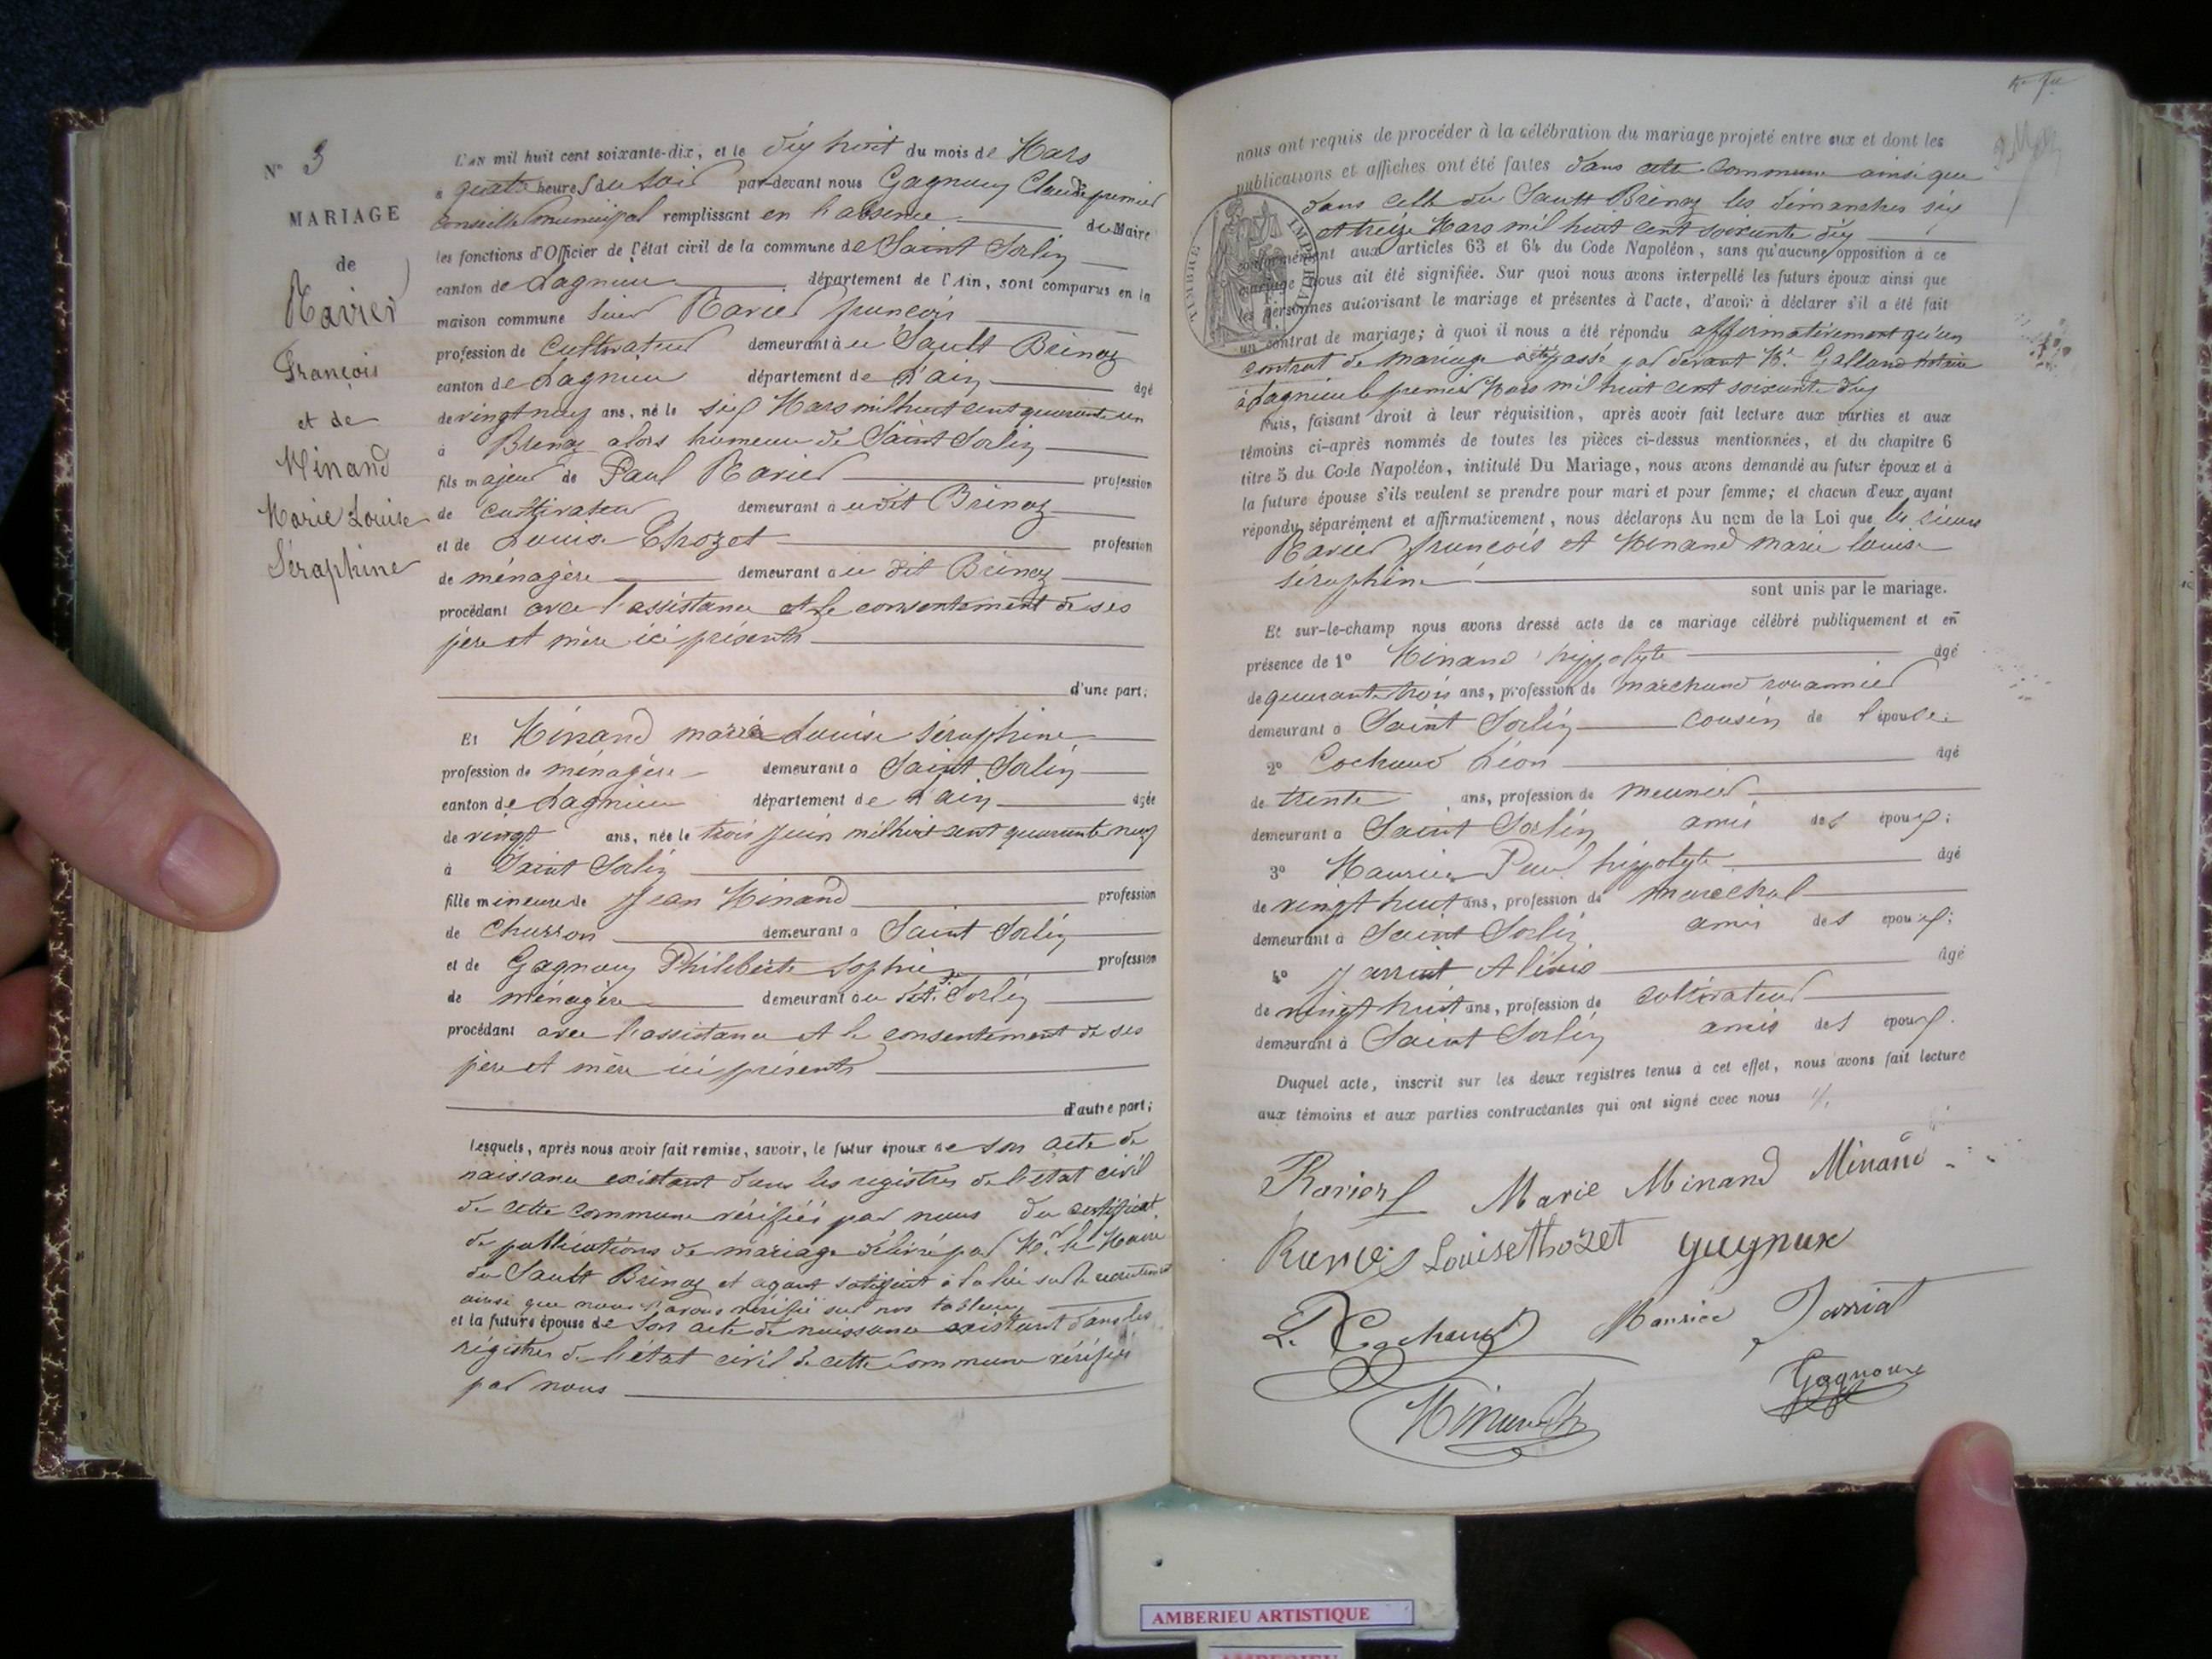 N° 3
MARIAGE
de
Ravier
François
et de
Minand
Marie Louise
Séraphine
L'an mil huit cent soixante-dix, et le dix huit du mois de Mars
à quatre heures du soir par-devant nous Gagnoux Claude premier
conseiller municipal remplissant en l'absence du Maire
les fonctions d'Officier de l'état civil de la commune de Saint Sorlin
canton de Lagnieu département de l'Ain, sont comparus en la
maison commune sieur Ravier françois
profession de cultivateur demeurant à u Sault Brénaz
canton de Lagnieu département de L'ain âgé
de vingt neuf ans, né le six Mars mil huit cent quarante un
à Brénaz alors hameau de Saint Sorlin
fils majeur de Paul Ravier profession
de cultivateur demeurant à udit Brénaz
et de Louise Thozet profession
de ménagère demeurant à u dit Brénaz
procédant avec l'assistance et le consentement de ses
père et mère ici présents
d'une part;
Et Minand marie Louise séraphine
profession de ménagère demeurant à Saint Sorlin
canton de Lagnieu département de L'ain âgée
de vingt ans, née le trois juin mil huit cent quarante neuf
à Saint Sorlin
fille mineure de Jean Minand profession
de charron demeurant à Saint Sorlin
et de Gagnoux Philiberte Sophie profession
de ménagère demeurant au dit St. Sorlin
procédant avec l'assistance et le consentement de ses
père et mère ici présents
d'autre part;
Lesquels, après nous avoir fait remise, savoir, le futur époux de son acte de
naissance existant dans les registres de l'état civil
de cette commune vérifiés par nous du certificat
de publications de mariage délivré par Mr. le Maire
du Sault Brénaz et ayant satisfait à la loi sur le recrutement
ainsi que nous l'avons vérifié sur nos tableaux
et la future épouse de son acte de naissance existant dans les
régistres de l'état civil de cette commune vérifiés
par nous
nous ont requis de procéder à la célébration du mariage projeté entre eux et dont les
publications et affiches ont été faites dans cette commune ainsi que
dans celle du Sault Brénaz les dimanches six
et treize Mars mil huit cent soixante dix
conformément aux articles 63 et 64 du Code Napoléon, sans qu'aucune opposition à ce
mariage nous ait été signifiée. Sur quoi nous avons interpellé les futurs époux ainsi que
les personnes autorisant le mariage et présentes à l'acte, d'avoir à déclarer s'il a été fait
un contrat de mariage; à quoi il nous a été répondu affirmativement qu'un
contrat de mariage a été passé par devant Me. Galland notaire
à Lagnieu le premier Mars mil huit cent soixante dix
Puis, faisant droit à leur réquisition, après avoir fait lecture aux parties et aux
témoins ci-après nommés de toutes les pièces ci-dessus mentionnées, et du chapitre 6
titre 5 du Code Napoléon, intitulé Du Mariage, nous avons demandé au futur époux et à
la future épouse s'ils veulent se prendre pour mari et pour femme; et chacun d'eux ayant
répondu séparément et affirmativement, nous déclarons Au nom de la Loi que les sieurs
Ravier françois et Minand marie louise
séraphine sont unis par le mariage.
Et sur-le-champ nous avons dressé acte de ce mariage célébré publiquement et en
présence de 1° Minand hippolyte âgé
de quarante trois ans, profession de marchand rouannier
demeurant à Saint Sorlin cousin de l'épouse;
2° Cochaud Léon âgé
de trente ans, profession de meunier
demeurant à Saint Sorlin ami des époux;
3° Maurice Paul hippolyte âgé
de vingt huit ans, profession de maréchal
demeurant à Saint Sorlin amis des époux;
4° Jarriat Alexis âgé
de vingt huit ans, profession de cultivateur
demeurant à Saint Sorlin amis des époux.
Duquel acte, inscrit sur les deux registres tenus à cet effet, nous avons fait lecture
aux témoins et aux parties contractantes qui ont signé avec nous
TIMBRE IMPERIAL
Ravier f Marie Minand Minand
Ravier Louise thozet gagnux
L. Cochaud Maurice Jarriat
Minand h Gagnoux
AMBERIEU ARTISTIQUE
AMBERIEU